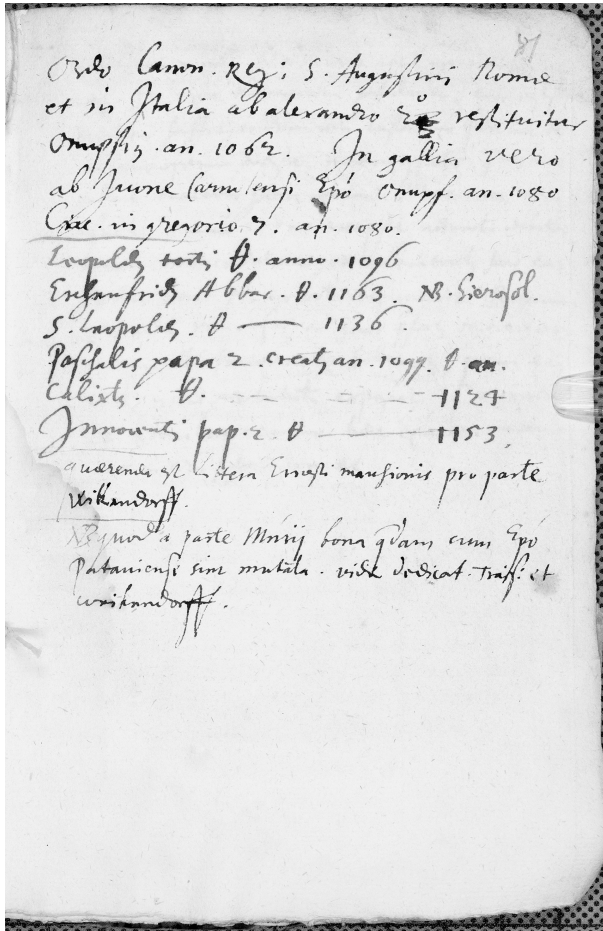 81
Ordo Canon. Reg: S. Augustini Romæ
et in Italia ab alexandro 2º restituitur
Onuphriꝰ. an. 1062. In gallia vero
ab Iuone Carnutensi Epõ Onupf. an. 1080
in gregorio 7. an. 1080.
Leopoldꝰ ✝. anno. 1096
Abbas. ✝. 1163. NB. Hierosol.
S. Leopoldꝰ. ✝ — 1136
Paschalis papa 2. creatꝰ an. 1099. ✝ an.
Calixtꝰ. ✝. — 1124
Innocentiꝰ pap. 2. ✝ — 1153.
quærenda est littera Ernesti mansionis pro parte
Wikendorff.
NB quod a parte Mrij bona qdam cum Epõ
Pataviense sint mutata. vide dedicat. Traff: et
weikendorff.